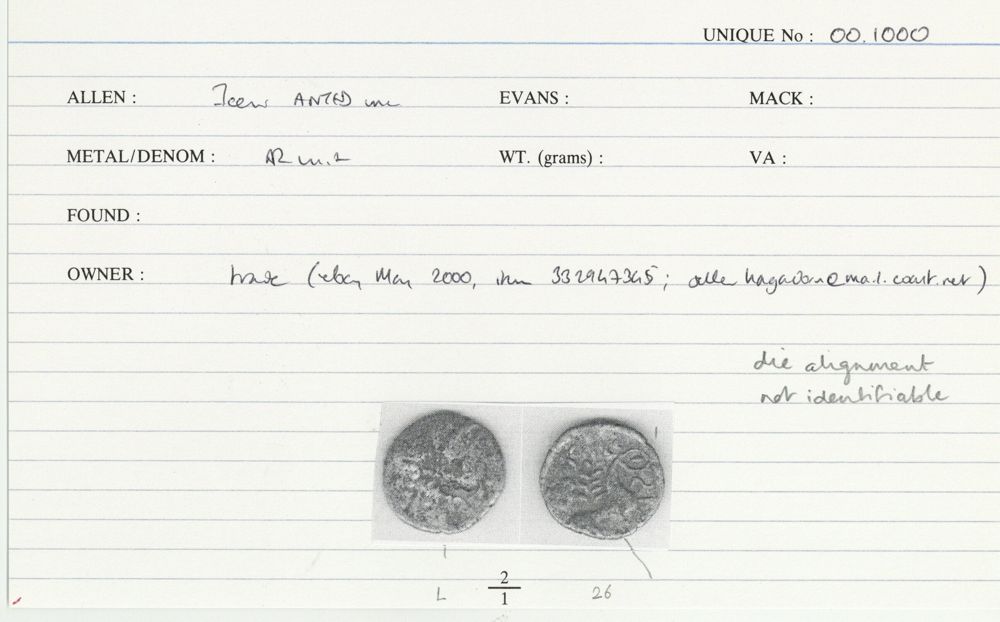 UNIQUE No : 00.1000
ALLEN : Iceni ANTED unc EVANS : MACK :
METAL/DENOM : AR unit WT. (grams) : VA :
FOUND :
OWNER : trade (ebay May 2000, item 332947345;
die alignment
not identifiable
L 2/1 26